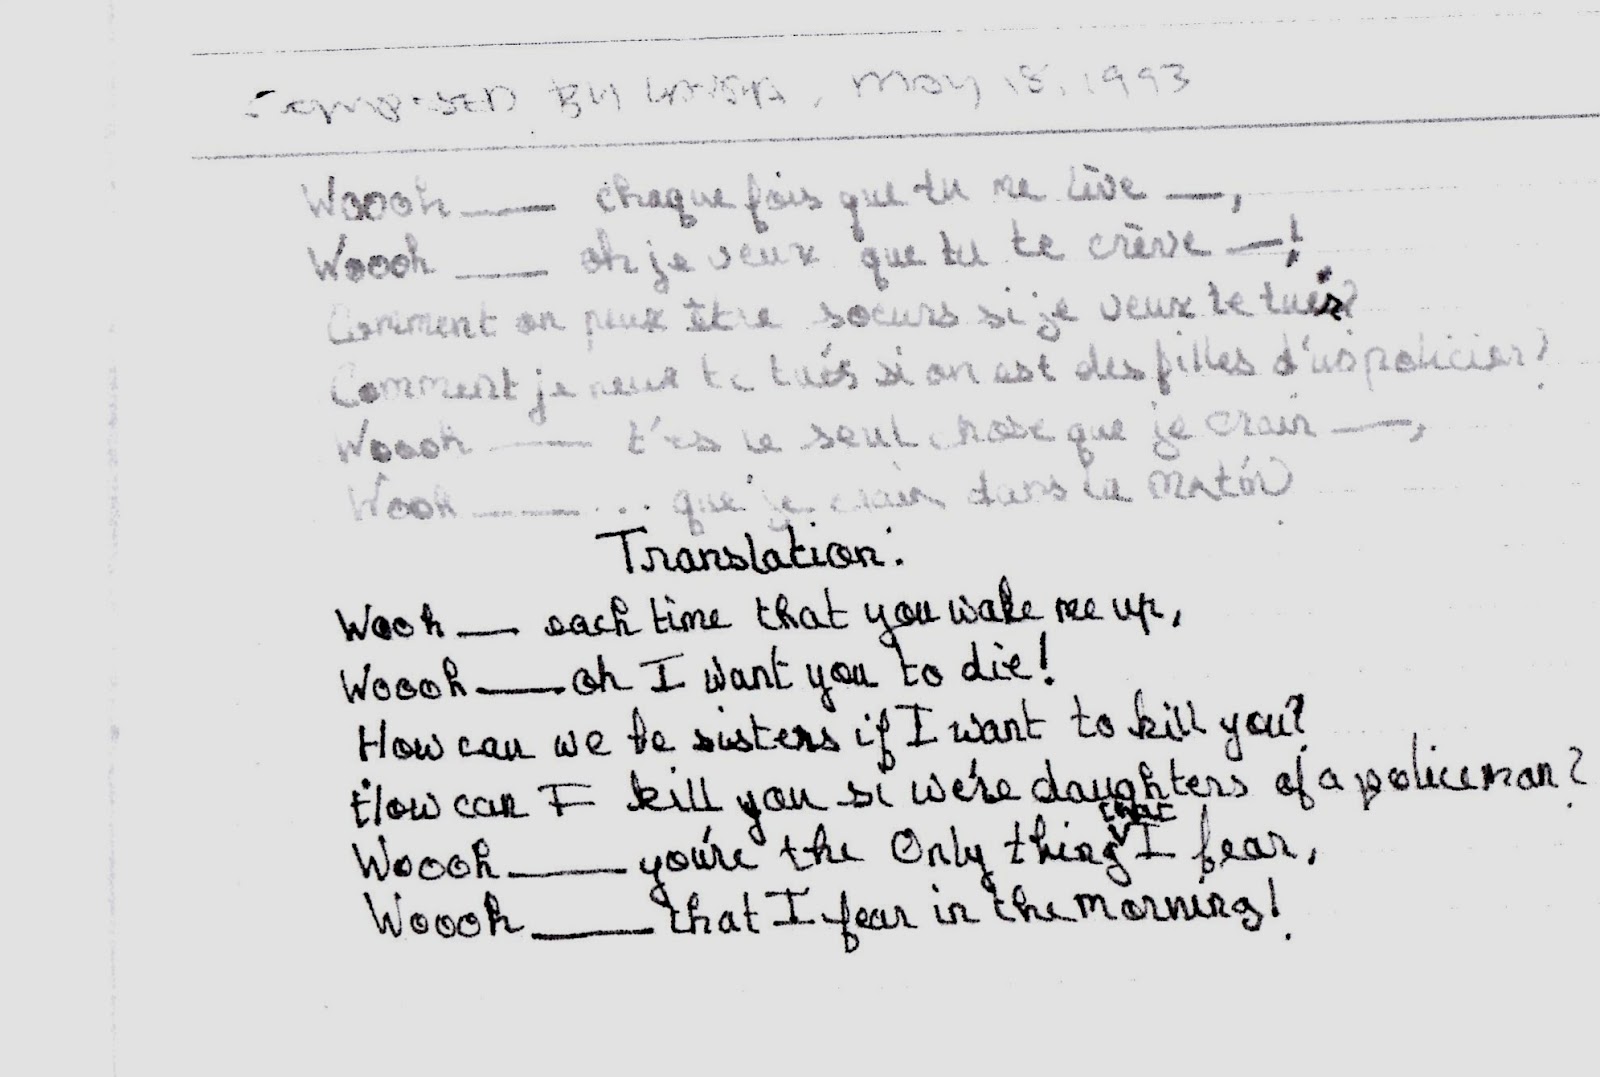 COMPOSED BY , MAY 18, 1993
Woooh — chaque fois que tu me lève —,
Woooh — oh je veux que tu te crève —!
Comment on peux être soeurs si je veux te tués?
Comment je peux te tués si on est des filles d'un policier?
Woooh — t'es le seul chose que je crain —,
Wooh — ... que je crain dans la matin
Translation:
Wooh — each time that you wake me up,
Woooh — oh I want you to die!
How can we be sisters if I want to kill you?
How can I kill you si we're daughters of a policeman?
Woooh — you're the only thing that I fear,
Woooh — that I fear in the morning!